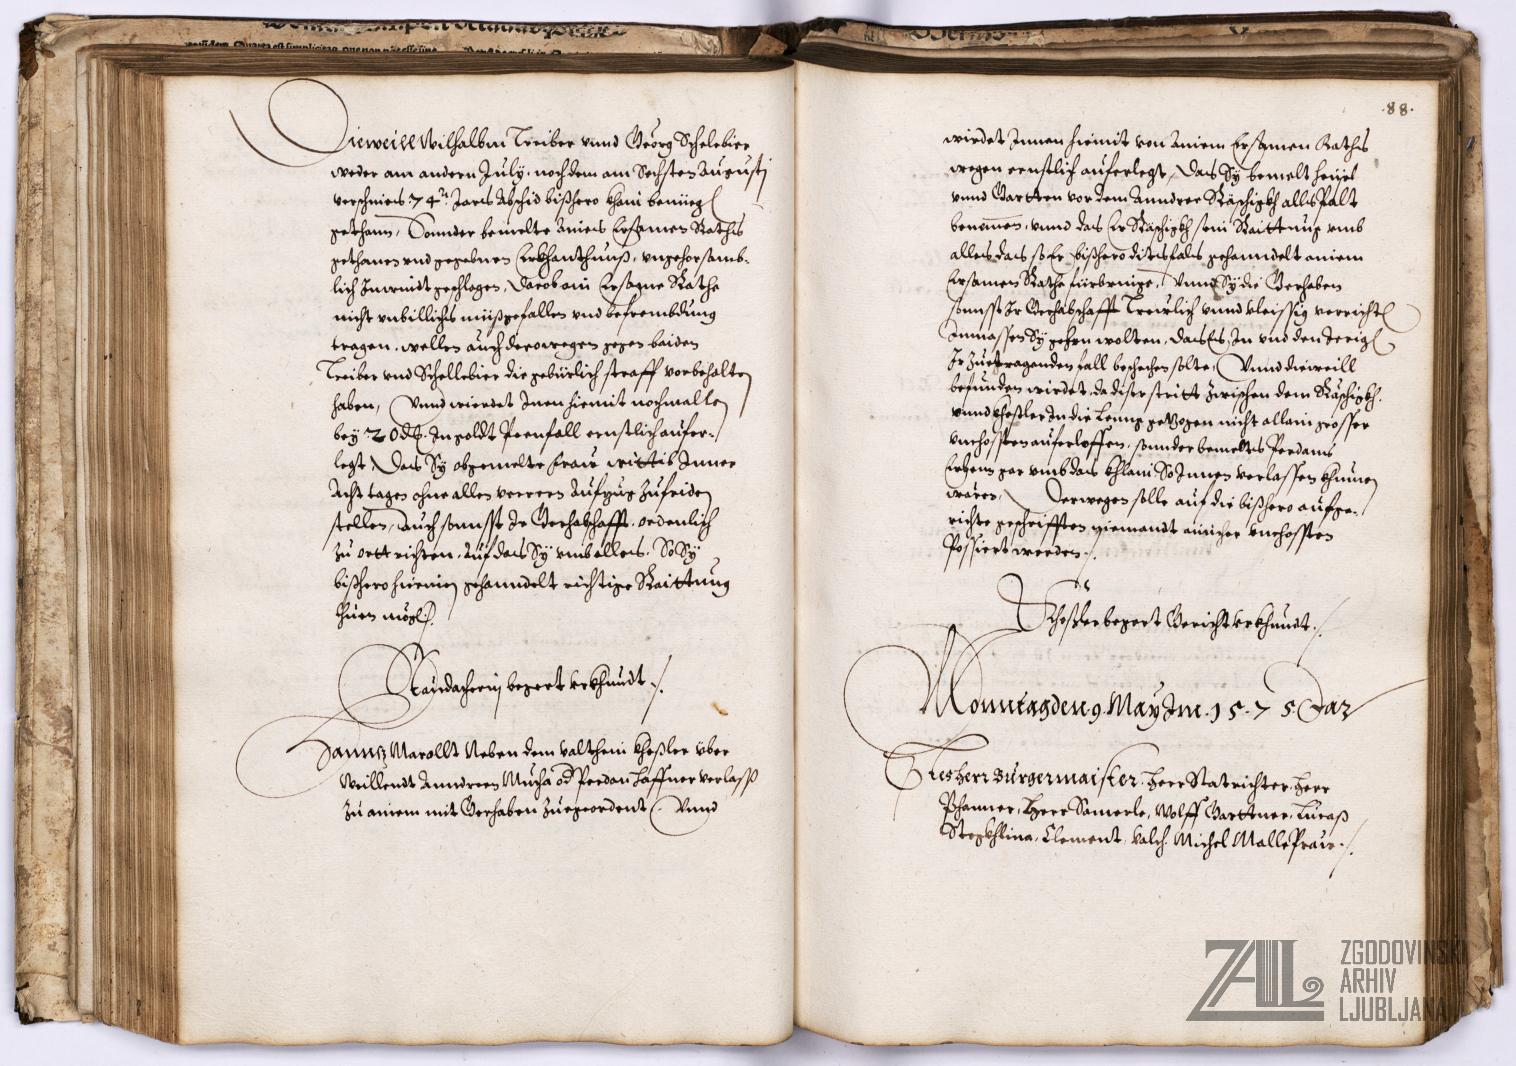 Dieweill Wilhalbm Treiber vnnd Georg Schelebier
weder am andern July, noch dem am Sechsten Augustj
verschines 74ts Jars Abschid bißhero khain benüeg
gethann, Sonnder bemelte aines Ersamen Raths
gethanen vnd gegebnen Erkhanthnuß, vngehorsamb-
lich In windt geschlagen, Darob ain Ersame Rathe
nicht vnbillichs müßgefallen vnd befrembdung
tragen, wellen auch derowegen gegen baiden
Treiber vnd Schellebier die gebürlich straff vorbehalten
haben, Vnnd wierdet Inen hiemit nochmallen
bey 20 In goldt Peenfall ernstlich aufer-
legt, Das Sy obgemelte Fraw wittib Inner
Acht tagen ohne allen verrern Aufzug Zufriden
stellen, Auch sonnsst Ir Gerhabschafft, ordenlich
zu ortt richten, Auf das Sy vmb allers, So Sy
bißhero hierinen gehanndelt richtige Raittung
thuen mög.
begert vrkhundt
Marollt Neben dem Kheßler über
Weillendt Anndreen Mucha od Haffner verlasß
zu ainem mit Gerhaben zuegeordent. Vnnd
.88.
wierdet Innen hiemit von ainem Ersamen Raths
wegen ernstlich auferlegt, Das Sy bemelt heüser
vnnd Gartten vor dem Anndree Räschizkh alls Palt
benemen, vnnd das Er Räschizkh sein Raittung vmb
alles das so Er bißhero ditsfals gehanndelt ainem
Ersamen Rathe fürbringe, Vnnd Sy die Gerhaben
sonnsst Ir Gerhabschafft Treulich vnnd vleissig verricht
Inmassen Sy gehrn wollten, das Es In vnd den Ierig
Ir Zuetraganden fall beschechen solte, Vnnd dieweill
befunden wierdet, da diser stritt Zwischen dem Räschizkh
vnnd Kheßler In die Leng gezogen nicht allain grosser
vnchossten auferloffen, sonnder bemelts Perdans
Erben gar vmb das khlain So Innen verlassen khumen
wären, Derwegen solle auf die bißhero aufge-
richte geschrifften niemandt ainicher vnchossten
Passiert werden.
Khesßler begert Gericht vrkhundt.
Monntag den 9 May Im 1575 Jar
Herr Burgermaister, Herr Statrichter, Herr
Phanner, Herr Samerle, Wolff Garttner, Lucaß
Stegkhlina, Clement, Valch, Michel Mallepraur.
ZAL
ZGODOVINSKI
ARHIV
LJUBLJANA